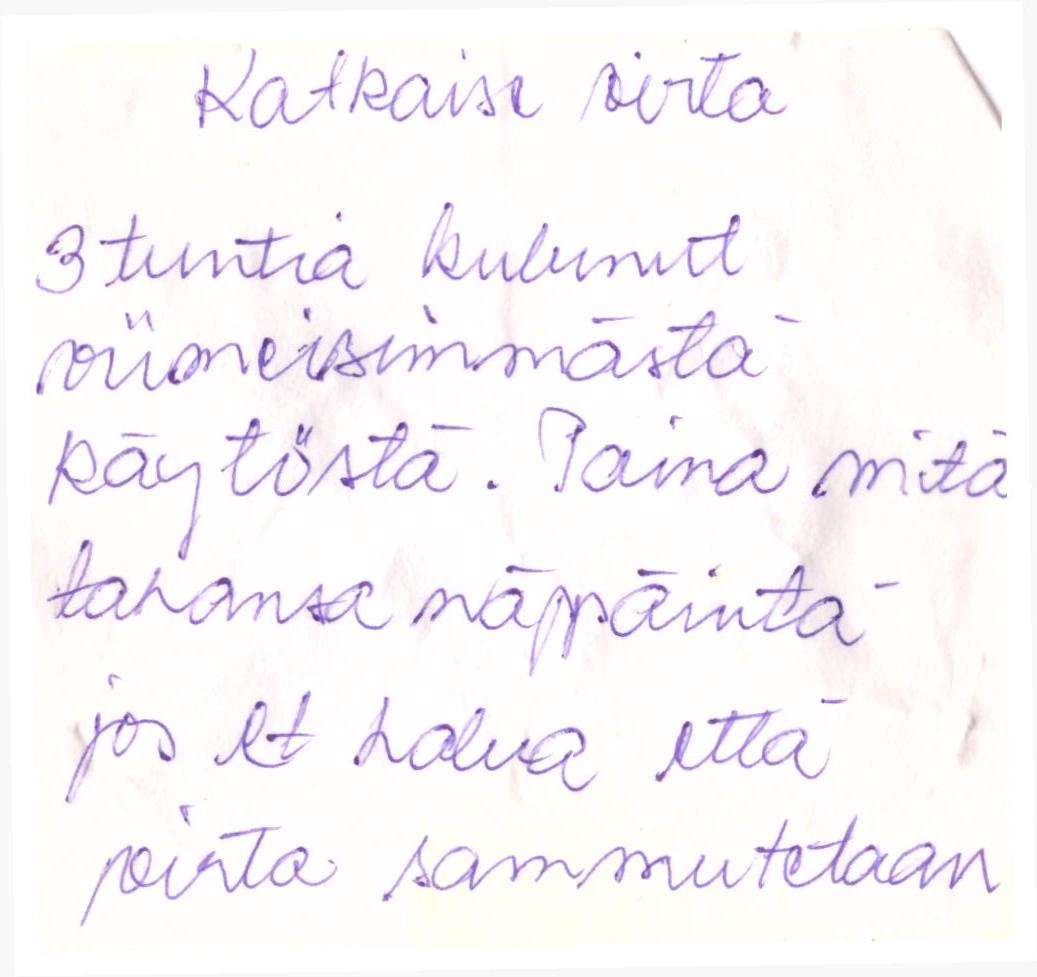 Katkaise virta
3 tuntia kulunut
viimeisimmästä
käytöstä. Paina mitä
tahansa näppäintä
jos et halua että
virta sammutetaan